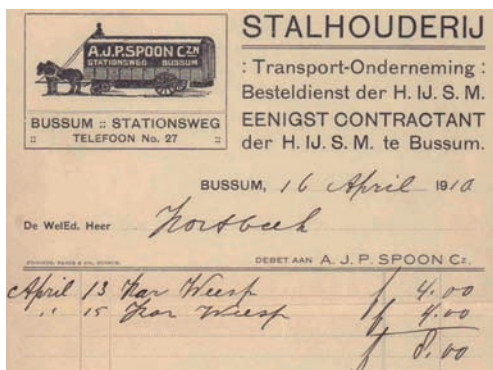 A.J.P. SPOON CZN
STATIONSWEG BUSSUM
BUSSUM :: STATIONSWEG
:: TELEFOON No. 27 ::
STALHOUDERIJ
: Transport-Onderneming :
Besteldienst der H. IJ. S. M.
EENIGST CONTRACTANT
der H. IJ. S. M. te Bussum.
BUSSUM, 16 April 1910
De WelEd. Heer Kortbeek
DEBET AAN A. J. P. SPOON Cz.
April 13 Kar Weesp f 4.00
" 15 Kar Weesp f 4.00
f 8.00